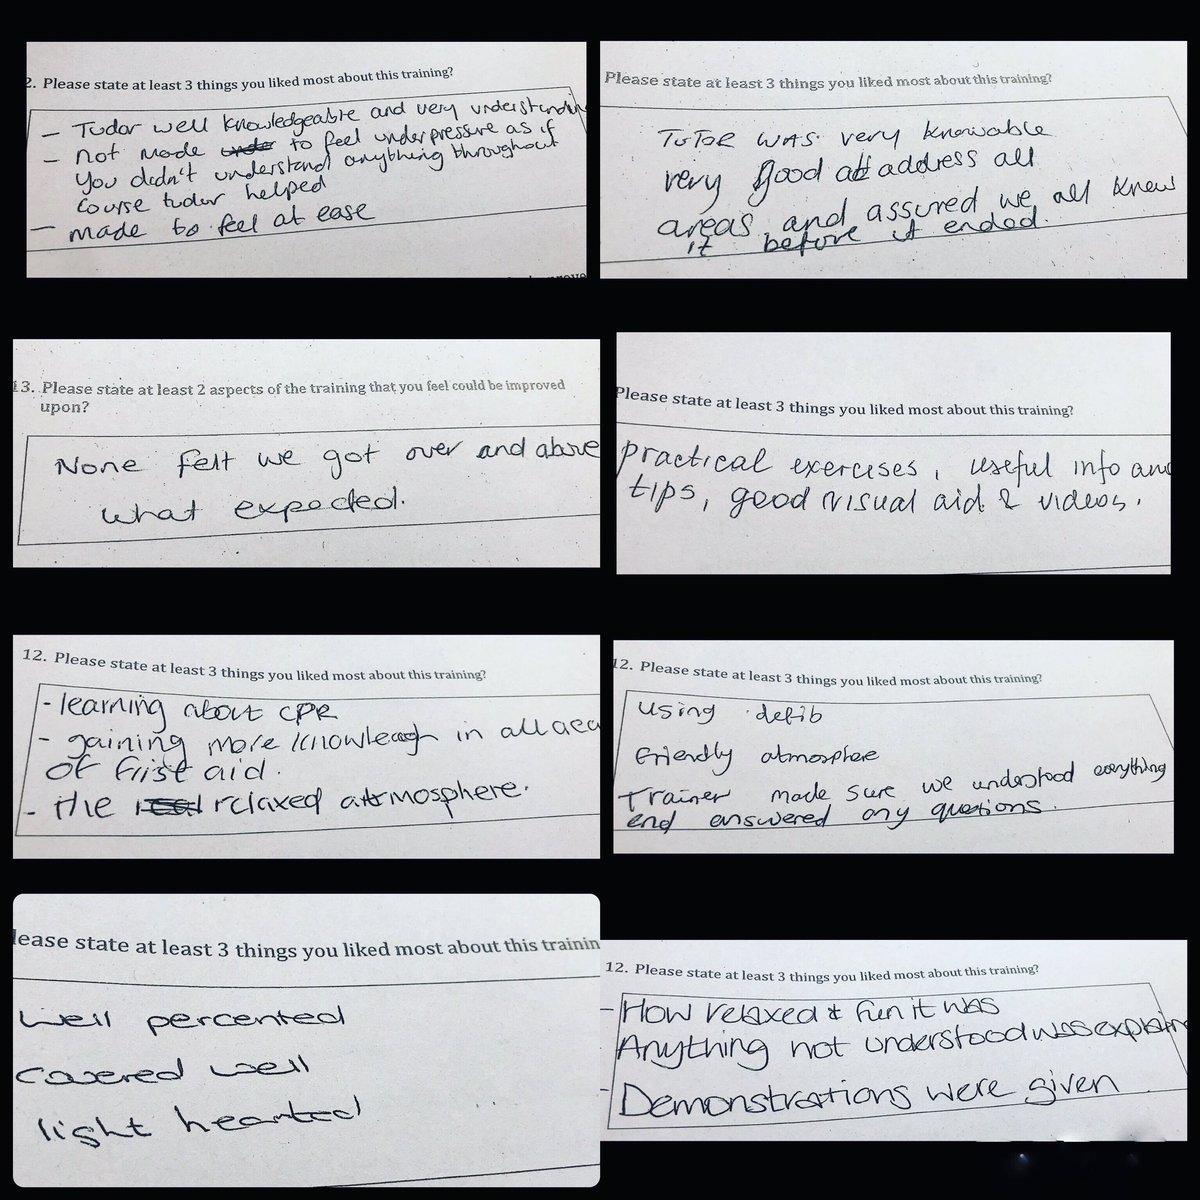 2. Please state at least 3 things you liked most about this training?
- Tudor well knowledgeable and very understanding
- not made to feel underpressure as if
you didn't understand anything throughout
course tudor helped
- made to feel at ease
Please state at least 3 things you liked most about this training?
TUTOR WAS very knowable
very good at address all
areas and assured we all knew
it before it ended.
13. Please state at least 2 aspects of the training that you feel could be improved
upon?
None felt we got over and above
what expected.
Please state at least 3 things you liked most about this training?
practical exercises, useful info and
tips, good visual aid & videos.
12. Please state at least 3 things you liked most about this training?
- learning about CPR
- gaining more knowleagh in all area
of first aid.
- the relaxed atmosphere.
12. Please state at least 3 things you liked most about this training?
using defib
Friendly atmosphere
Trainer made sure we understood everything
and answered any questions.
lease state at least 3 things you liked most about this trainin
well percented
covered well
light hearted
12. Please state at least 3 things you liked most about this training?
- How relaxed & fun it was
Anything not understood was explain
- Demonstrations were given